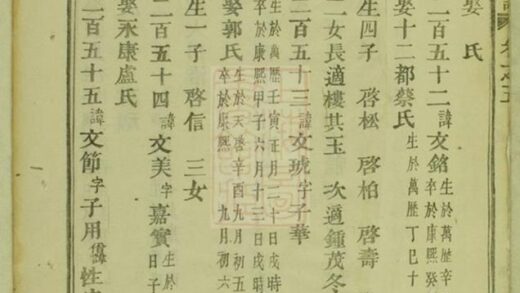 譜 卷之五
娶 氏
二百五十二 諱文銘 生於萬歷辛
卒於康熙癸
娶十二都蔡氏 生於萬歷丁巳十
生四子 啓松 啓柏 啓壽
二女長適樓共玉 次適鍾茂冬
二百五十三 諱文琥字子華
生於萬歷壬寅正月二十日戌時
卒於康熙甲子六月十三日戌時
娶郭氏 生於天啓辛酉九月初五
卒於康熙 九月初六
生一子 啓信 三女
二百五十四 諱文美字嘉賓 生於
日子
娶永康盧氏
二百五十五 諱文節字子用 性